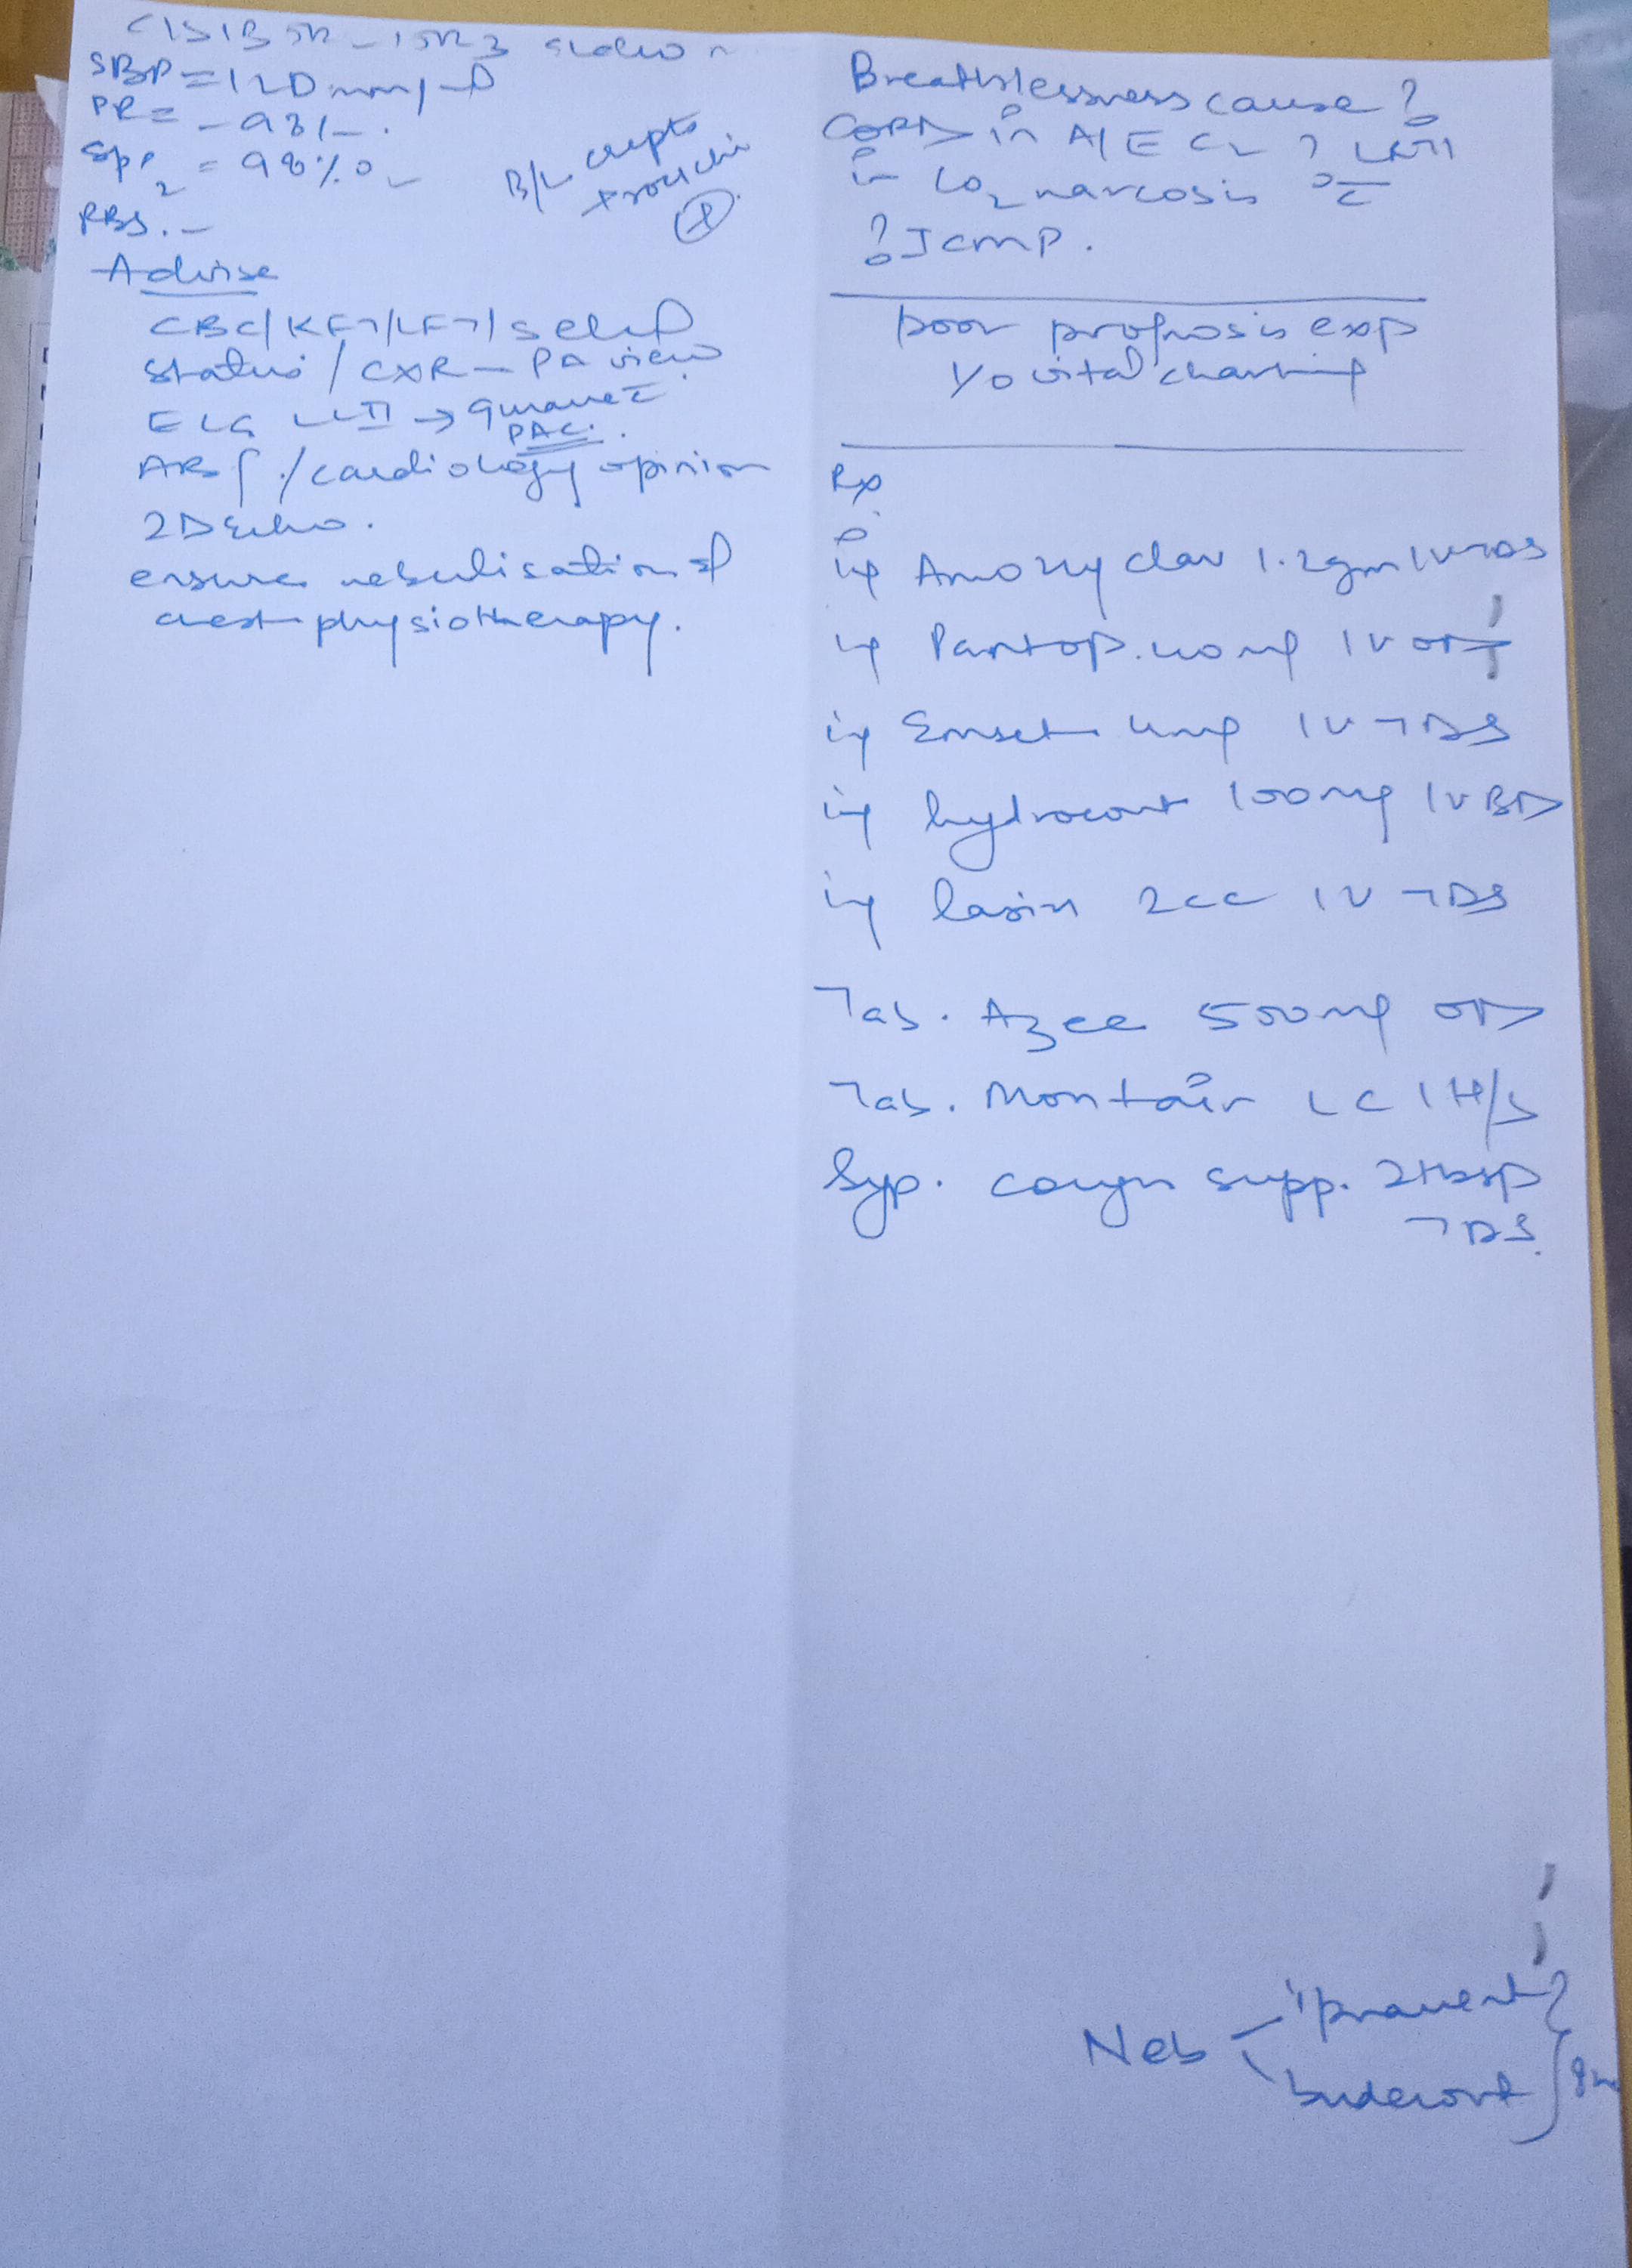 SBP = 120 mmHg
PR =
SpO2 = 98%
RBS. -
B/L crepts
+
Advise
CBC/KFT/LFT/Seled
status/CXR - PA view
ECG
PAC.
ABG./cardiology opinion
2D Echo.
ensure nebulisation &
chest physiotherapy.
Breathlessness cause?
COPD in A/E ? LRTI
in CO2 narcosis
? ICMP.
poor prognosis exp
I/O vital charting
Rx
inj Amoxyclav 1.2gm IV TDS
inj Pantop. 40mg IV OD
inj Emset 4mg IV TDS
inj hydrocort 100mg IV BD
inj lasix 2cc IV TDS
Tab. Azee 500mg OD
Tab. Montair LC 1 H/S
Syp. cough supp. 2tbsp
TDS.
Neb
budecort